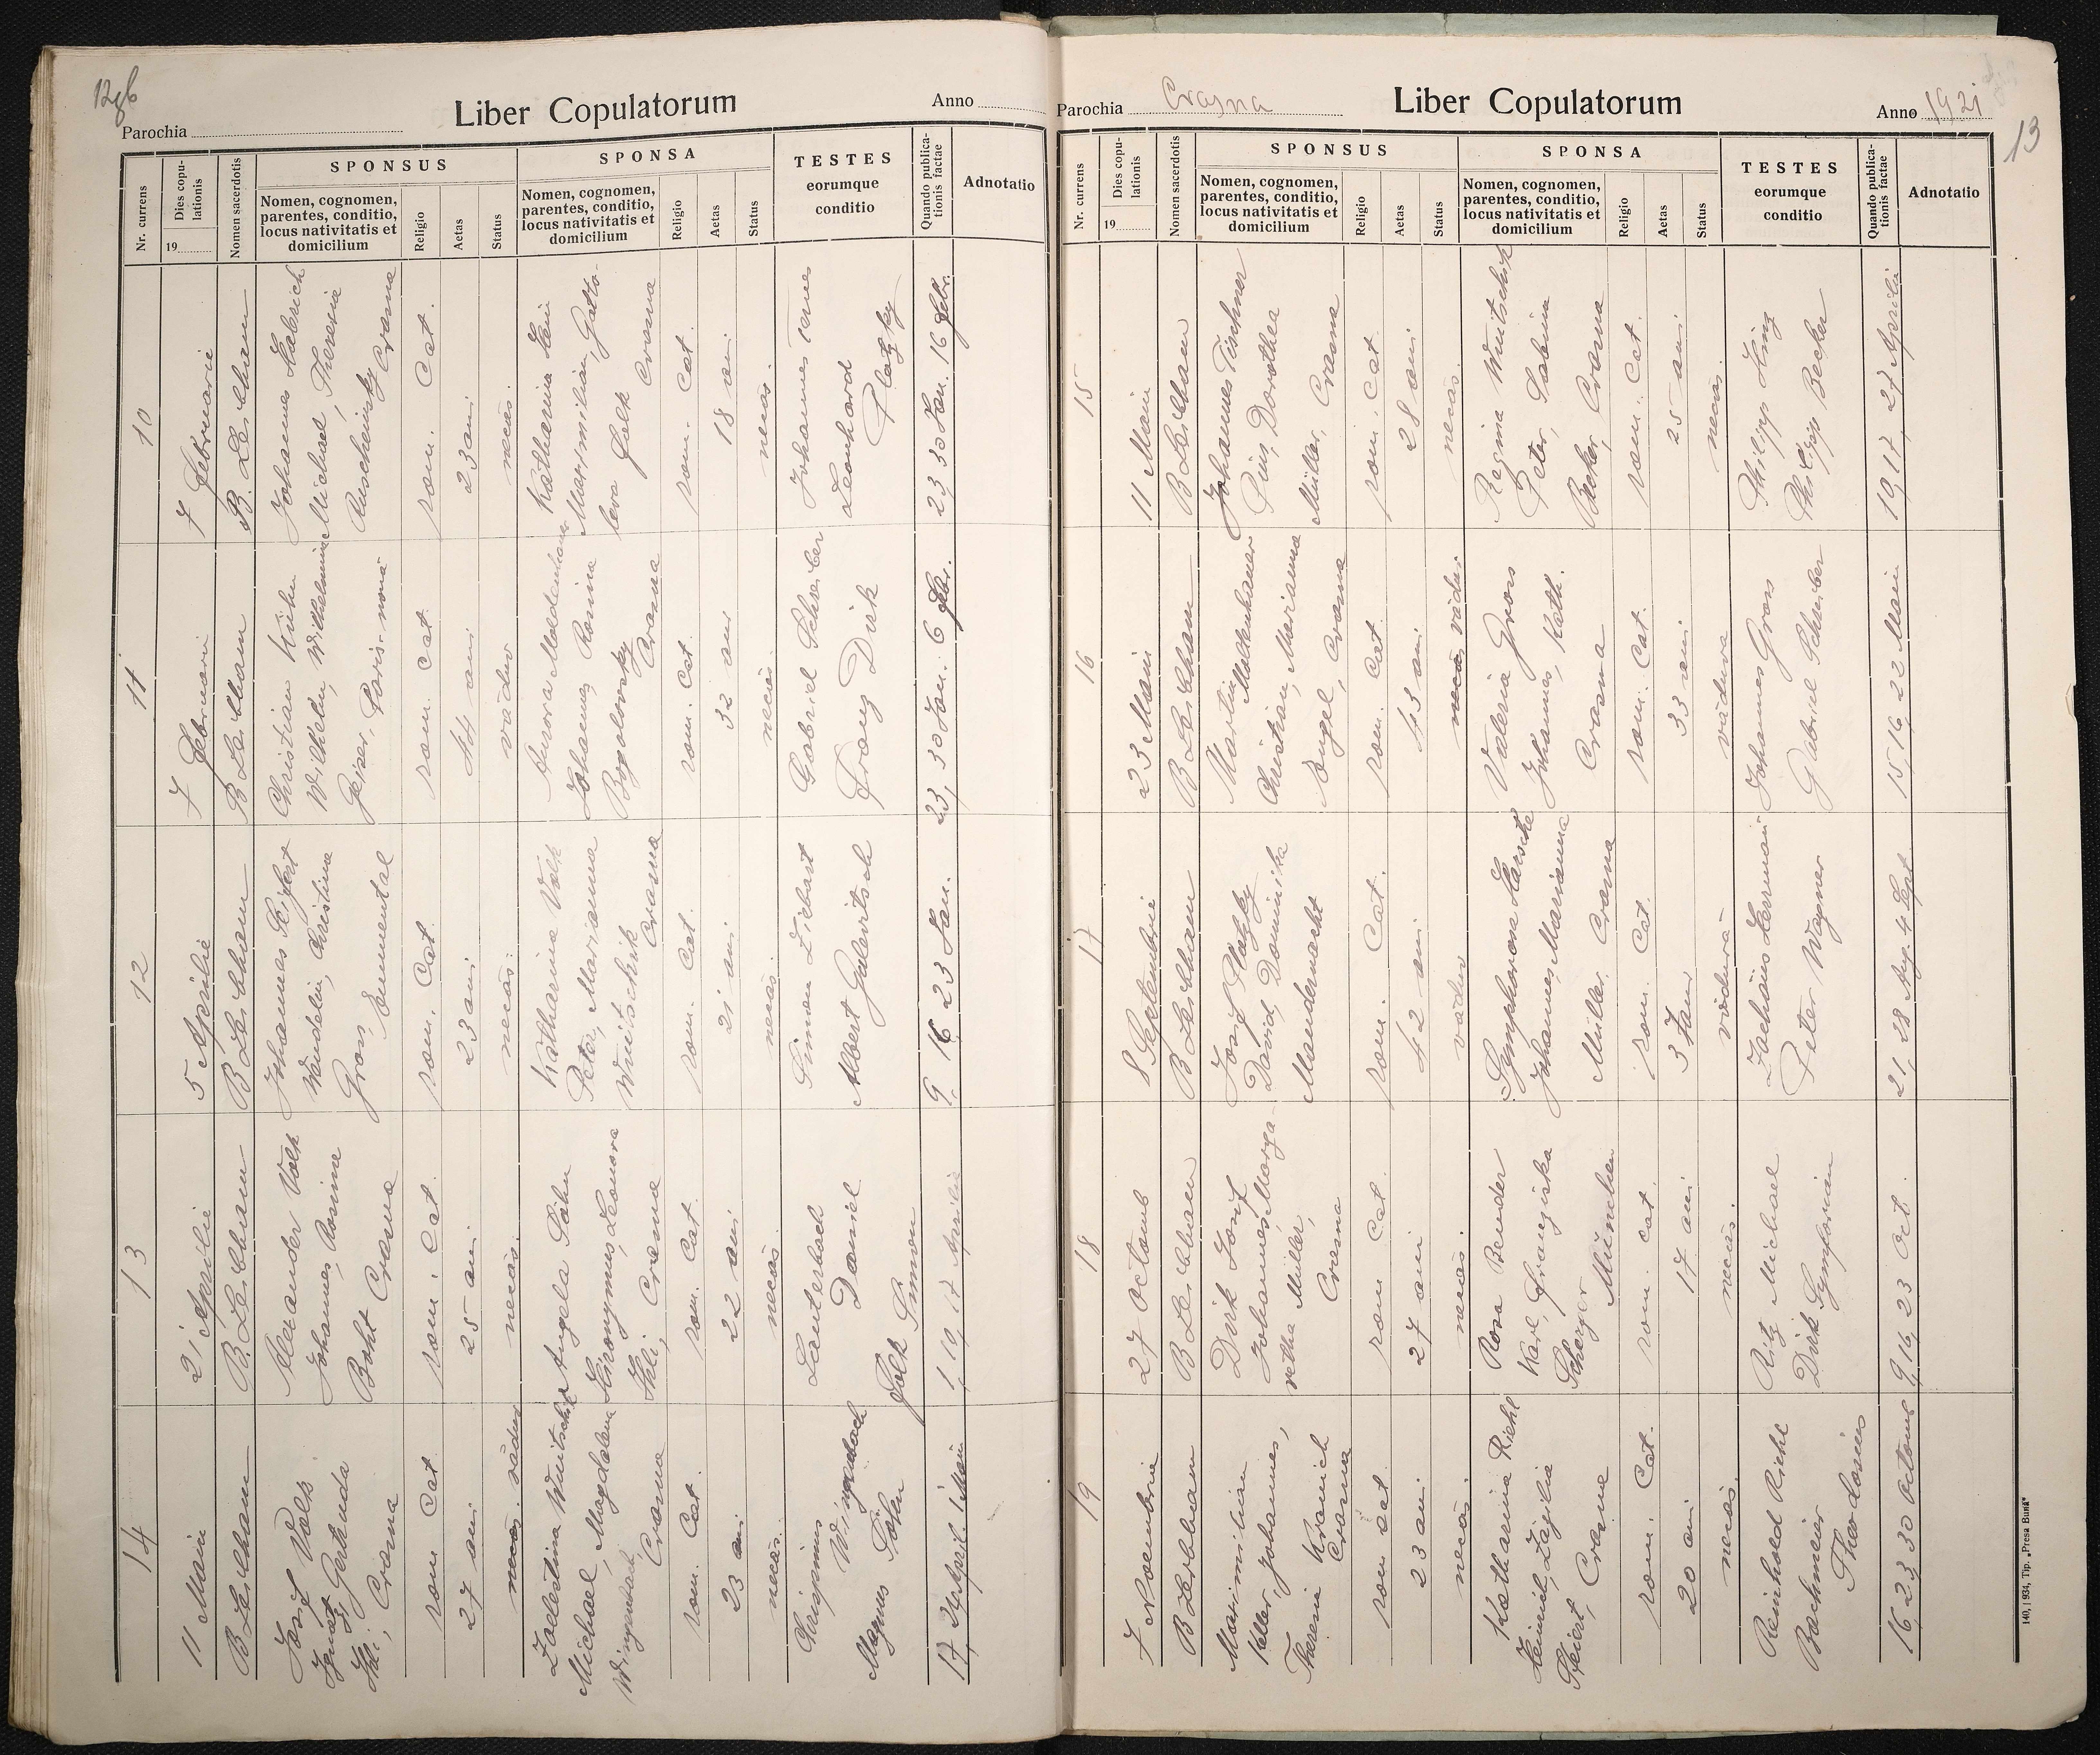 12gb
Parochia
Liber Copulatorum
Anno
Nr. currens
Dies copu-
lationis
19
Nomen sacerdotis
SPONSUS
Nomen, cognomen,
parentes, conditio,
locus nativitatis et
domicilium
Religio
Aetas
Status
SPONSA
Nomen, cognomen,
parentes, conditio,
locus nativitatis et
domicilium
Religio
Aetas
Status
TESTES
eorumque
conditio
Quando publica-
tionis factae
Adnotatio
10
7 Februarie
B. Leibham
Johannes Haberich
Michael, Theresia
Ruscheinsky
Crasna
rom. Cat.
23 ani
necăs.
Katharina
Maximilian, Gotto-
bera Folk
Crasna
rom. Cat.
18 ani
necăs.
Johannes Ternes
Leonhard
Platzky
23 30 Jan. 16 Febr.
11
7 Februarie
B Leibham
Christian Kühn
Wilhelm, Wilhelmina
Geiser, Paris-nouă
rom. Cat.
44 ani
văduv
Aurora Moldenhauer
Johannes, Rosina
Bogolowsky
Crasna
rom. Cat.
32 ani
necăs.
Gabriel Schreiber
Franz Dirk
23, 30 Jan. 6 Febr.
12
5 Aprilie
B Leibham
Johannes Seifert
Wendelin, Christina
Gross,
Emmental
rom. Cat.
23 ani
necăs.
Katharina Volk
Peter, Marianna
Wuitschik
Crasna
rom. Cat.
21 ani
necăs.
Simon Ziebart
Albert Gulewitsch
9. 16 23 Jan.
13
21 Aprilie
B. Leibham
Alexander Volk
Johannes, Rosina
Boht Crasna
rom. Cat.
25 ani
necăs.
Angela Söhn
Hironymus, Leonora
Ihli, Crasna
rom. Cat.
22 ani
necăs.
Lauterbach
Daniel
Folk Simon
1, 10, 17 Aprilie
14
11 Maiu
B Leibham
Josef Volk
Ignatz, Gertruda
Ihli, Crasna
rom Cat.
27 ani
necăs. văduv
Zoelestina Wuitschik
Michael, Magdalena
Wingenbach,
Crasna
rom. Cat.
23 ani
necăs.
Chrispinus
Wingenbach
Magnus Söhn
17, 24 April. 1 Maiu
Parochia Crasna
Liber Copulatorum
Anno 1921
13
Nr. currens
Dies copu-
lationis
19
Nomen sacerdotis
SPONSUS
Nomen, cognomen,
parentes, conditio,
locus nativitatis et
domicilium
Religio
Aetas
Status
SPONSA
Nomen, cognomen,
parentes, conditio,
locus nativitatis et
domicilium
Religio
Aetas
Status
TESTES
eorumque
conditio
Quando publica-
tionis factae
Adnotatio
15
11 Maiu
B Leibham
Johannes Tischner
Pius, Dorothea
Müller, Crasna
rom. Cat.
28 ani
necăs.
Regina Wuitschik
Peter, Sabina
Becker, Crasna
rom. Cat.
25 ani
necăs.
Philipp
Philipp Becker
10, 17, 27 Aprilie
16
23 Maiu
B Leibham
Martin Moldenhauer
Christian, Marianna
Engel, Crasna
rom. Cat.
43 ani
necăs văduv.
Valeria Gross
Johannes, Kath.
Crasna
rom. Cat.
33 ani
văduva
Johannes Gross
Gabriel Schreiber
15, 16, 22 Maiu
17
8 Septembrie
B Leibham
Josef Platzky
David, Dominika
Mandernacht
rom. Cat.
42 ani
văduv
Symphorosa Harsche
Johannes, Marianna
Müller, Crasna
rom. Cat.
37 ani
văduvă
Zachäus Herrmann
Peter Wagner
21, 28 Aug. 4 Sept.
18
27 Octomb
B Leibham
Dirk Josef
Johannes, Marga-
retha Müller,
Crasna
rom Cat.
27 ani
necăs.
Rosa Bender
Karl, Franziska
Scherger
München
rom. cat.
17 ani
necăs.
Ritz Michael
Dirk Symforian
9, 16, 23 Oct.
19
7 Noembrie
B Leibham
Maximilian
Keller, Johannes,
Theresia Kranich
Crasna
rom cat.
23 ani
necăs.
Katharina Riehl
Heinrich, Zäzilia
Seifert, Crasna
rom. Cat.
20 ani
necăs.
Reinhold Riehl
Bachmeier
Theodosius
16, 23, 30 Octomb
140, 1934, Tip. „Presa Bună"